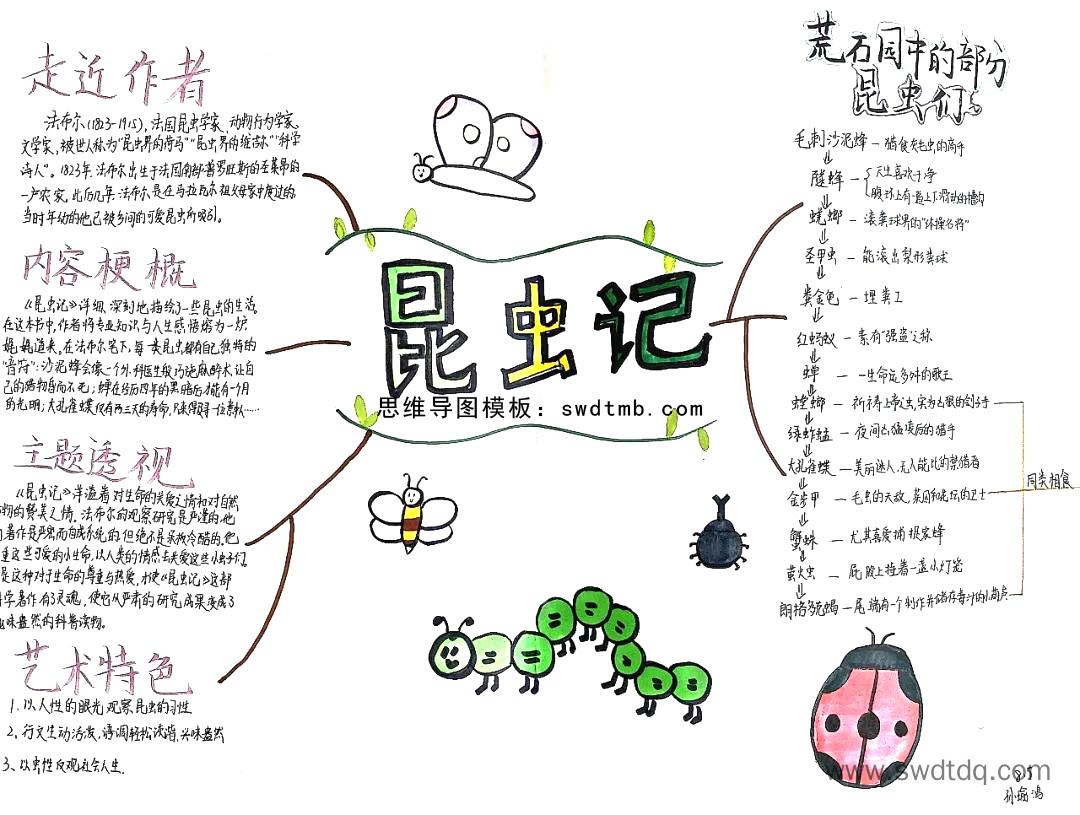 走近作者
法布尔(1823-1915),法国昆虫学家,动物行为学家,
文学家,被世人称为"昆虫界的荷马""昆虫界的维吉尔""科学
诗人"。1823年,法布尔出生于法国南部普罗旺斯的圣莱昂的
一户农家。此后几年,法布尔是在马拉瓦尔祖父母家中度过的,
当时年幼的他已被乡间的可爱昆虫所吸引。
内容梗概
《昆虫记》详细、深刻地描绘了一些昆虫的生活,
在这本书中,作者将专业知识与人生感悟熔为一炉,
娓娓道来,在法布尔笔下,每一类昆虫都有自己独特的
"音符":沙泥蜂会像一个外科医生般巧施麻醉术,让自
己的猎物昏而不死;蝉在经历四年的黑暗后才能有一个月
的光明;大孔雀蝶仅有两三天的寿命,只来得及寻一位
主题透视
《昆虫记》洋溢着对生命的关爱之情和对自然
物的赞美之情。法布尔的观察研究是严谨的,他
著作是严密而自成系统的,但绝不是呆板冷酷的。他
重这些可爱的小生命,以人类的情感去关爱这些小虫子们。
是这种对于生命的尊重与热爱,才使《昆虫记》这部
学著作有了灵魂,使它从严肃的研究成果变成了
味盎然的科普读物。
艺术特色
1.以人性的眼光观察昆虫的习性
2、行文生动活泼,语调轻松诙谐,兴味盎然
3、以虫性反观社会人生.
昆虫记
思维导图模板：swdtmb.com
荒石园中的部分
昆虫们。
毛刺沙泥蜂 - 猎食黄毛虫的高手
隧蜂 - 天生喜欢干净
腹环上有一道上下滑动的槽沟
螳螂 - 滚粪球界的"体操名将"
圣甲虫 - 能滚出梨形粪球
粪金龟 - 埋粪工
红蚂蚁 - 素有"强盗"之称
蝉 - 一生命运多舛的歌王
螳螂 - 祈祷上帝虫,实为凶狠的刽子手
绿蚱蜢 - 夜间凶猛凌厉的猎手
大孔雀蝶 - 美丽迷人,无人能比的禁猎者
金步甲 - 毛虫的天敌,菜园和花坛的卫士
蟹蛛 - 尤其喜爱捕捉家蜂
萤火虫 - 屁股上挂着一盏小灯笼
朗格多克蝎 - 尾端有一个制作并储存毒汁的小葫芦
同类相食
www.swdtdq.com